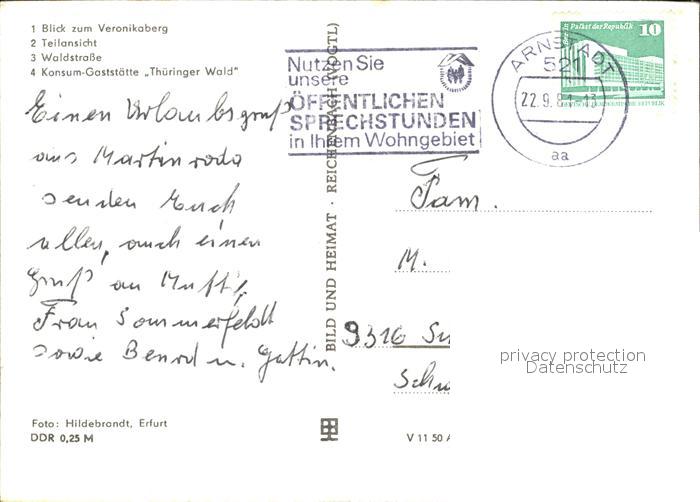 1 Blick zum Veronikaberg
2 Teilansicht
3 Waldstraße
4 Konsum-Gaststätte „Thüringer Wald"
Einen Urlaubsgruß
aus Martinroda
senden Euch
allen, auch einen
Gruß an Mutti,
Frau Sommerfeldt
sowie Bernd u. Gattin.
Foto: Hildebrandt, Erfurt
DDR 0,25 M
BILD UND HEIMAT · REICHENBACH (VOGTL)
V 11 50 A
Nutzen Sie
unsere
ÖFFENTLICHEN
SPRECHSTUNDEN
in Ihrem Wohngebiet
ARNSTADT
521
22.9.8
aa
Palast der Republik
10
Fam.
M.
9316
privacy protection
Datenschutz